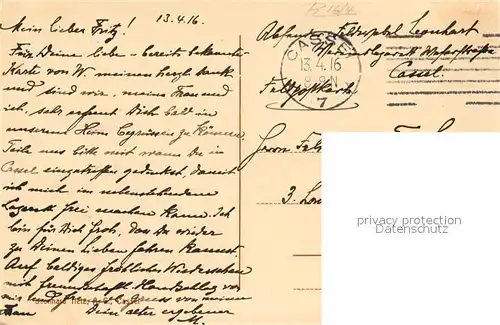 13.4.16
Mein lieber Fritz!
Für Deine liebe bereits bekannte
Karte von W. meinen herzl. Dank
und sind wir, meine Frau und
ich, sehr erfreut Dich bald in
unserem Heim begrüssen zu können.
Teile uns bitte mit wann Du in
Cassel einzutreffen gedenkst, damit
ich mich im nebenstehenden
Lazarett frei machen kann. Ich
bin für Dich froh, dass Du wieder
zu Deinen Lieben fahren kannst.
Auf baldiges fröhliches Wiedersehen
mit freundschaftl. Handschlag von
mir von meiner
Frau Dein alter ergebener
Leonhard Tietz, A.-G., Cassel
Absender: Feldwebel Leonhart
Cassel.
Feldpostkarte
CASSEL
13.4.16
N
7
Herrn
3.
privacy protection